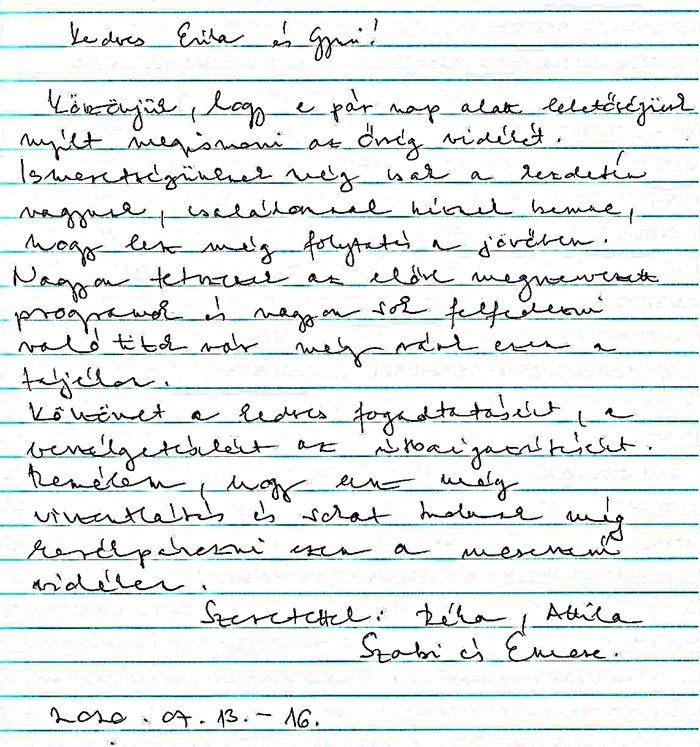 Kedves Erika és Gyuri!
Köszönjük, hogy e pár nap alatt lehetőségünk
nyílt megismerni az Őrség vidékét.
Ismeretségünknek még csak a kezdetén
vagyunk, családommal hiszek benne,
hogy lesz még folytatás a jövőben.
Nagyon tetszettek az előre megszervezett
programok és nagyon sok felfedezni
való titok vár még ránk ezen a
tájékon.
Köszönet a kedves fogadtatásért, a
beszélgetésekért az útbaigazításért.
Remélem, hogy lesz még
viszontlátás és sokat tudunk még
kerékpározni ezen a meseszerű
vidéken.
Szeretettel: Réka, Attila
Szabi és Emese.
2020. 07. 13. - 16.